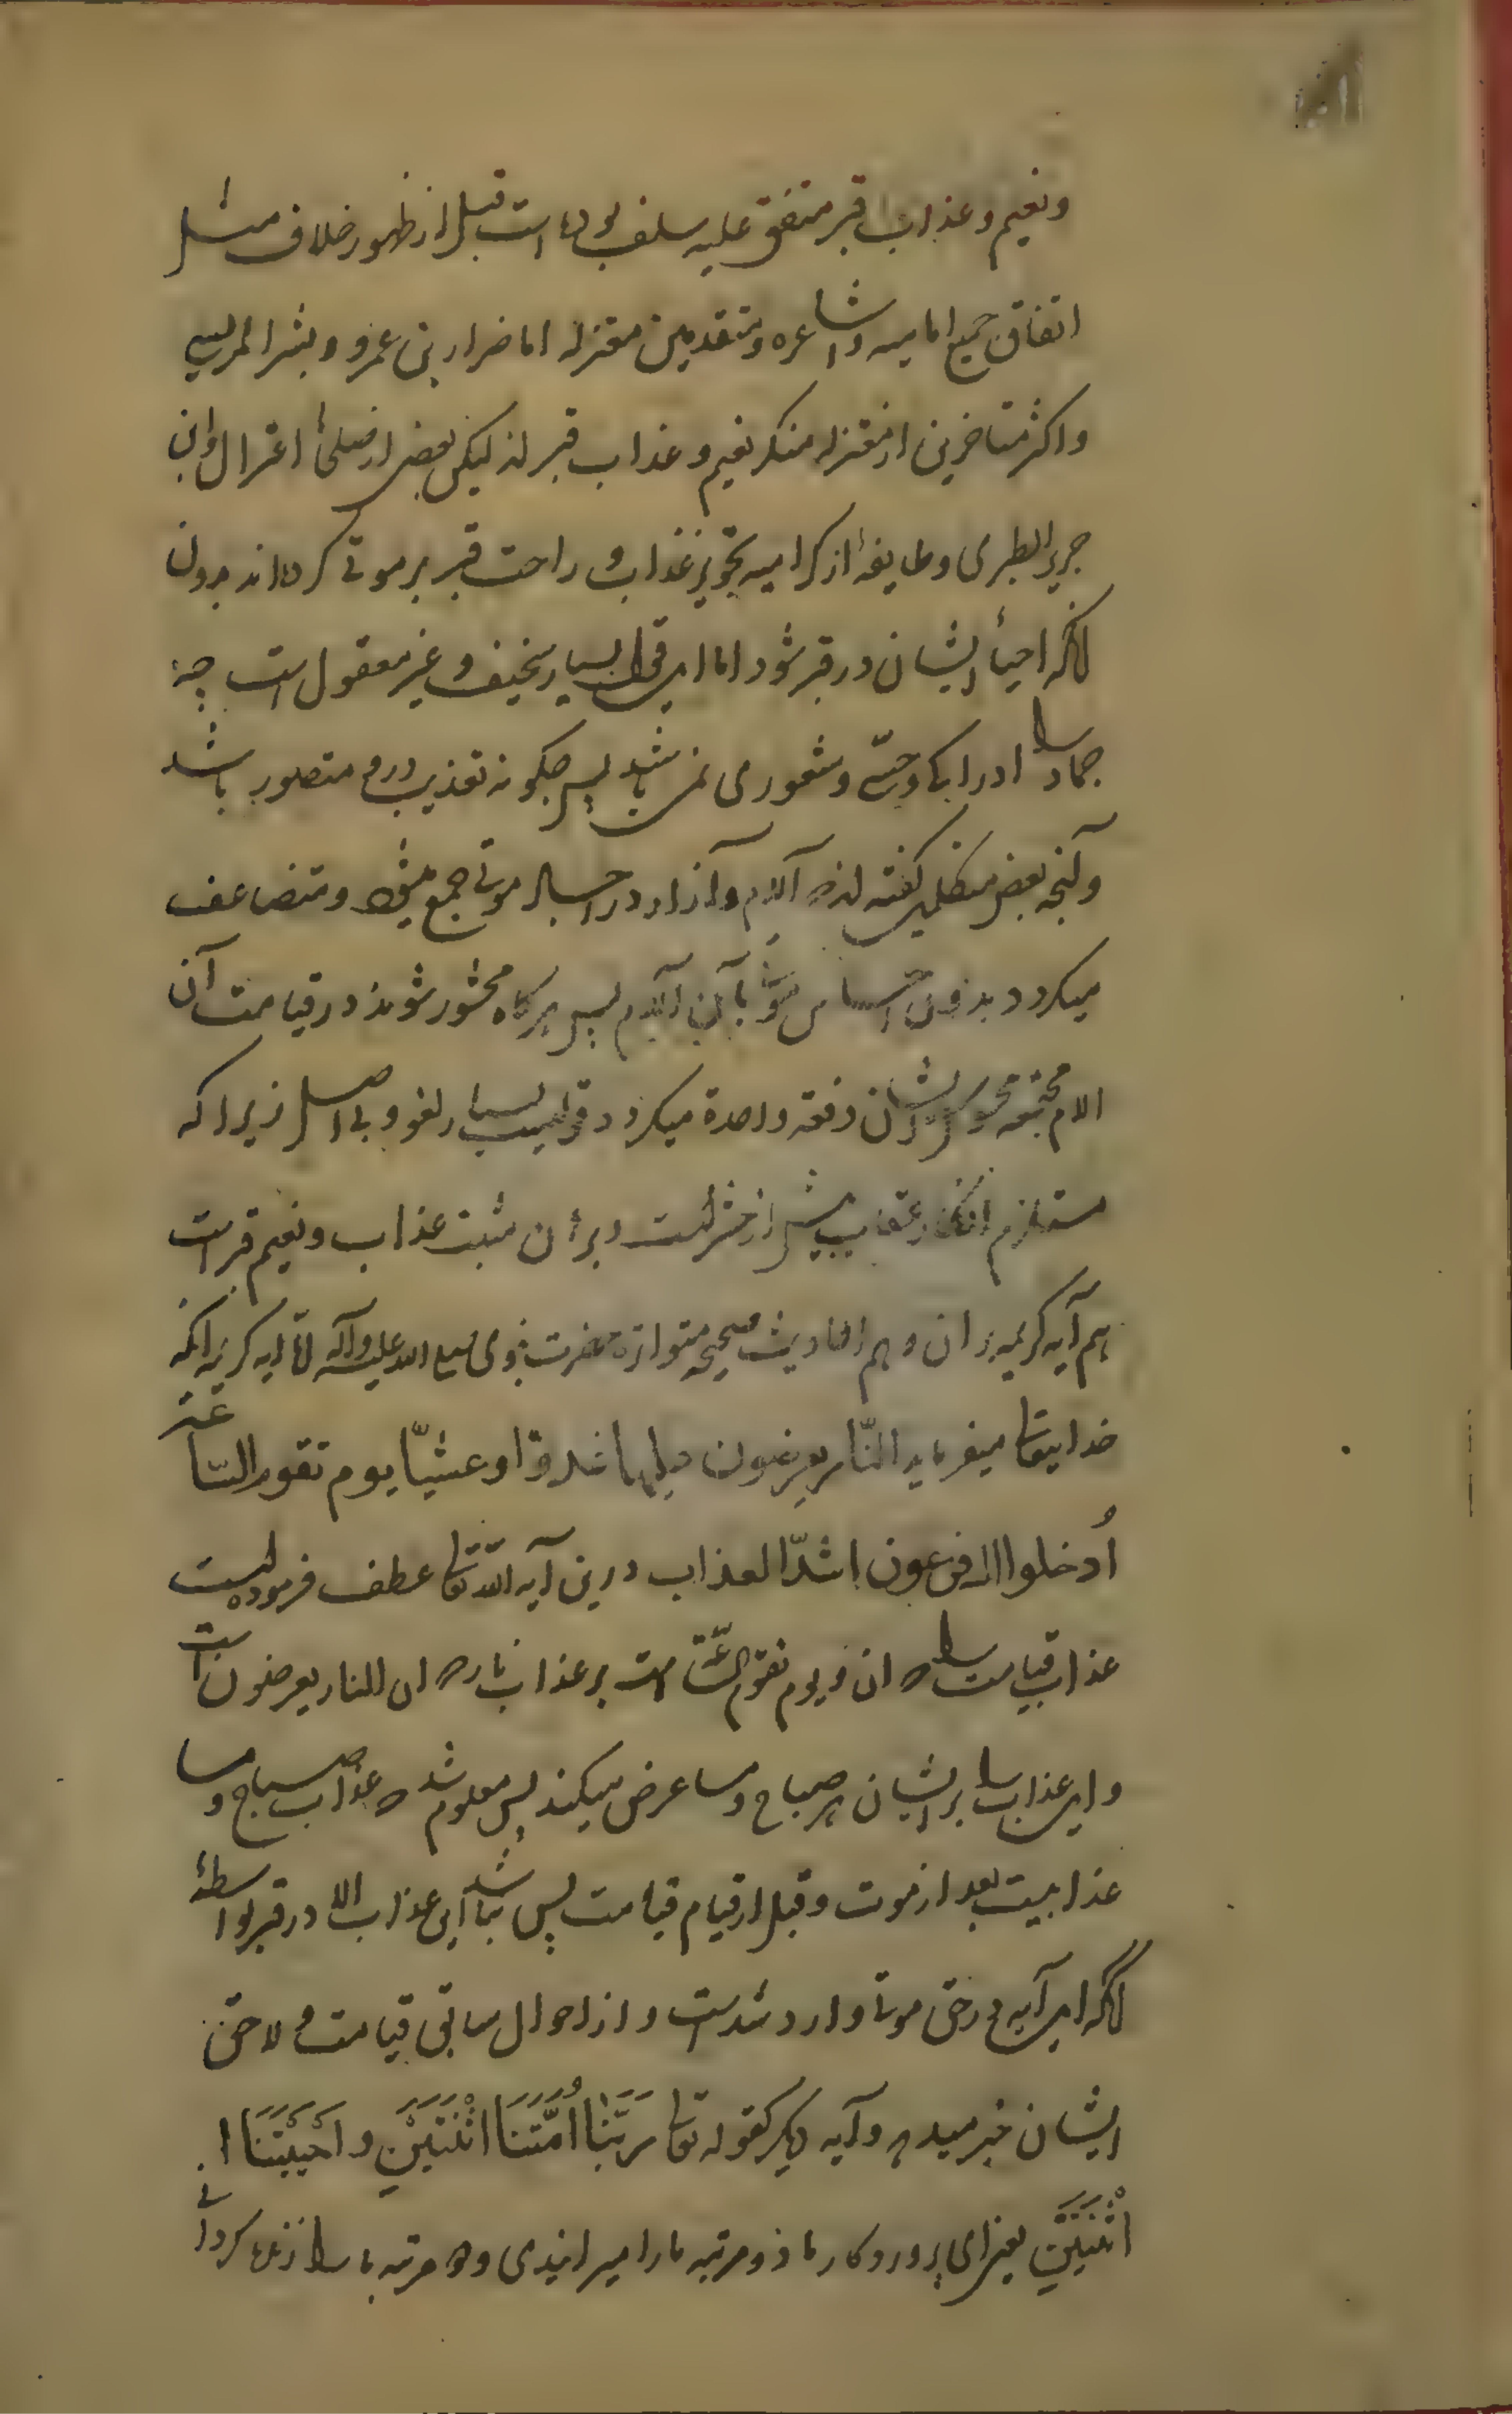 ونعیم و عذاب قبر متفق علیه سلف بوده است قبل از ظهور خلاف مثل
اتفاق جمیع امامیه و اشاعره و متقدمین معتزله اما ضرار بن عمرو و بشر المریسی
و اکثر متاخرین از معتزله منکر نعیم و عذاب قبر اند لیکن بعض از صلحای اعتزال و ابن
جریر الطبری و طایفهٔ از کرامیه تجویز عذاب و راحت قبر بر موتی کرده اند بدون
آنکه احیاء ایشان در قبر شود اما این قول بسیار سخیف و غیر معقول است چه
جماد را ادراک و حسّی و شعوری نمی باشد پس چگونه تعذیب درو متصور باشد
و آنچه بعض متکلمین گفته اند که آلام و آزار در اجساد موتی جمع میشود و متضاعف
میکردد بدون احساس موتی بآن آلام پس هرگاه محشور شوند در قیامت آن
الام مجتمعه محسوس ایشان دفعة واحدة میکردد قولیست بسیار لغو و بی اصل زیرا که
مستلزم انکار عذاب پیش از حشر است و برهان مثبت عذاب و نعیم قبر است
هم آیه کریمه قران و هم احادیث صحیحه متواتره حضرت نبوی صلی الله علیه وآله اما آیه کریمه آنکه
خدایتعالی میفرماید النّار یعرضون علیها غدوّا وعشیّا یوم تقوم السّاعة
اُدخلوا ال فرعون اشدّ العذاب درین آیه الله تعالی عطف فرموده است
عذاب قیامت را که ان و یوم تقوم السّاعة است بر عذاب نار که ان النار یعرضون است
و این عذاب را بر ایشان هر صباح و مسا عرض میکنند پس معلوم شد که عذاب صباح و مسا
عذابیست بعد از موت و قبل از قیام قیامت پس نباشد این عذاب الا در قبر بواسطهٔ
آنکه این آیه در حق موتی وارد شده است و از احوال سابق قیامت و لاحق
ایشان خبر میدهد و آیه دیکر کقوله تعالی رَبَّنَا أَمَتَّنَا اثْنَتَيْنِ و احْيَيْتَنَا ا
اثْنَتَيْنِ یعنی ای پروردکار ما دو مرتبه ما را میرانیدی و دو مرتبه ما را زنده کردانی